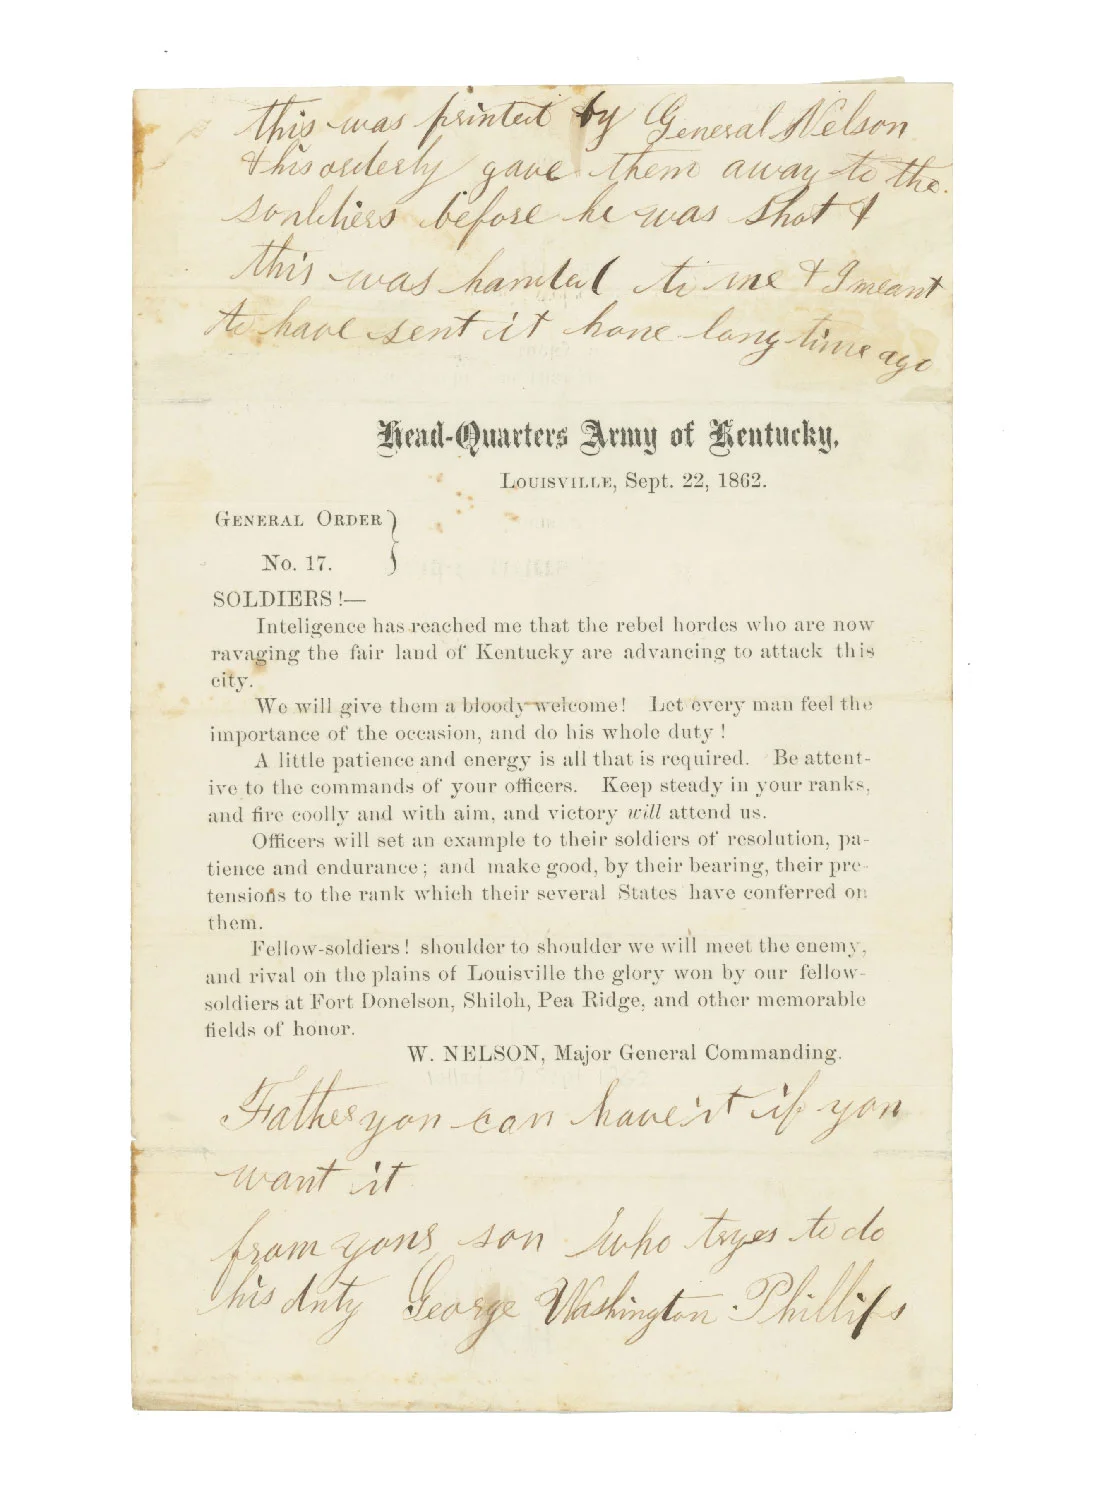 this was printed by General Nelson
& his orderly gave them away to the
sonldiers before he was shot &
this was handed to me & I meant
to have sent it hone long time ago
Head-Quarters Army of Kentucky,
LOUISVILLE, Sept. 22, 1862.
GENERAL ORDER }
No. 17.
SOLDIERS!—
Inteligence has reached me that the rebel hordes who are now
ravaging the fair land of Kentucky are advancing to attack this
city.
We will give them a bloody welcome! Let every man feel the
importance of the occasion, and do his whole duty!
A little patience and energy is all that is required. Be attent-
ive to the commands of your officers. Keep steady in your ranks,
and fire coolly and with aim, and victory will attend us.
Officers will set an example to their soldiers of resolution, pa-
tience and endurance; and make good, by their bearing, their pre-
tensions to the rank which their several States have conferred on
them.
Fellow-soldiers! shoulder to shoulder we will meet the enemy,
and rival on the plains of Louisville the glory won by our fellow-
soldiers at Fort Donelson, Shiloh, Pea Ridge, and other memorable
fields of honor.
W. NELSON, Major General Commanding.
Father you can have it if you
want it
from yous son who tryes to do
his duty George Washington Phillips